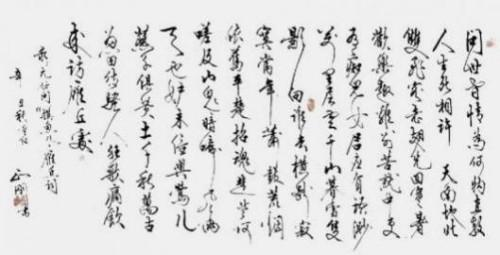 问世间情为何物直教
人生死相许 天南地北
雙飛客老翅几回寒暑
歡樂趣離别苦就中更
有痴兒女君應有語渺
萬里层雲千山暮雪隻
影向誰去橫汾路寂
寞當年萧鼓荒烟
依舊平楚招魂楚些何
嗟及山鬼暗啼風雨
天也妒未信與莺儿
燕子俱黄土千秋萬古
为留待騷人狂歌痛飲
来访雁丘處
录元好问摸鱼儿雁丘词